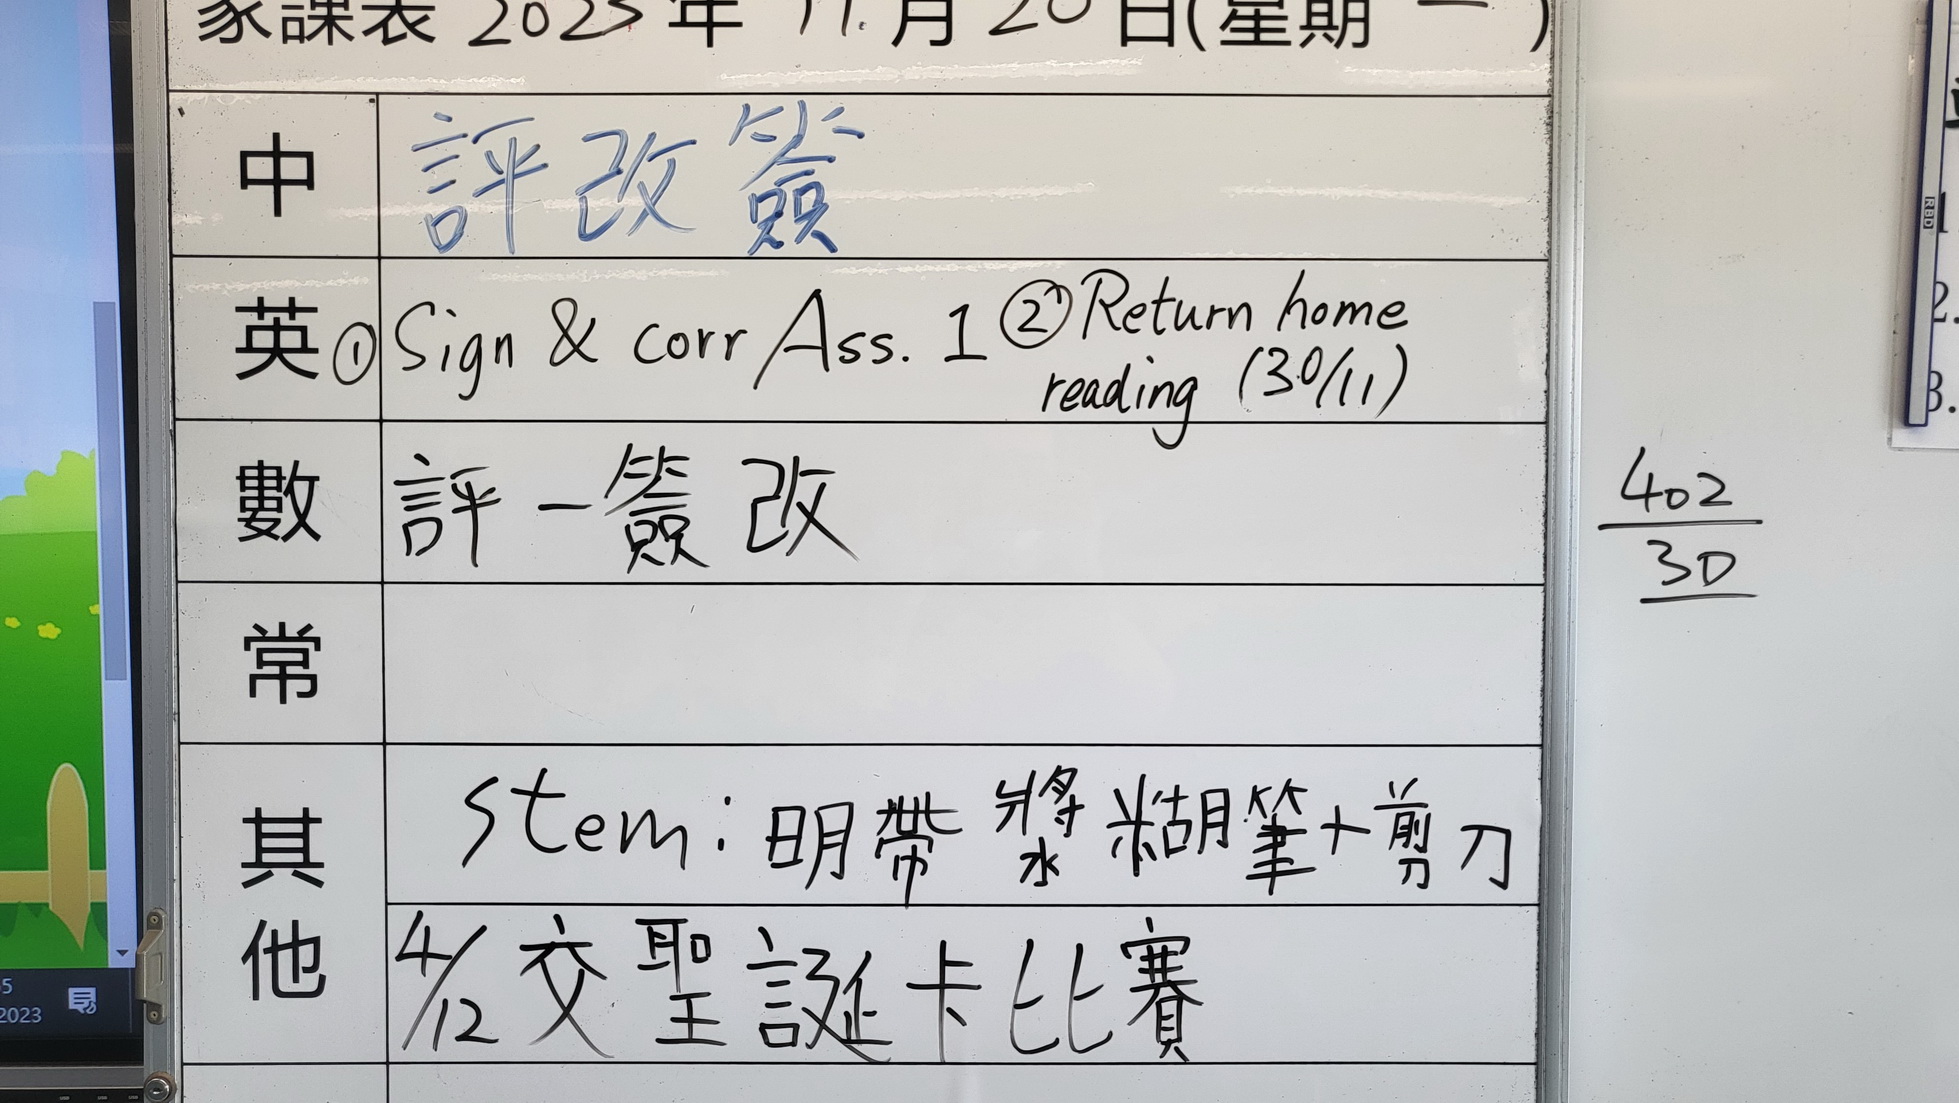 家課表 2023年 11月 20日(星期 一 )
中 評改簽
英 ① Sign & corr Ass. 1 ② Return home
reading (30/11)
數 評一簽改
常
其他
stem：明帶漿糊筆+剪刀
4/12 交聖誕卡比賽
402
30
5
2023
RBD
1
2.
3.